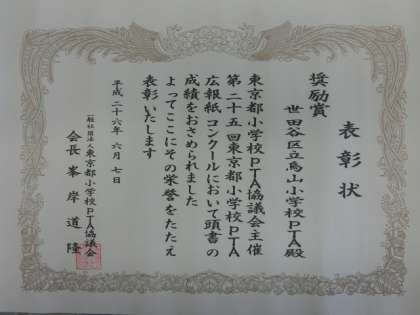 表彰状
奨励賞
世田谷区立烏山小学校PTA殿
東京都小学校PTA協議会主催
第二十五回東京都小学校PTA
広報紙コンクールにおいて頭書の
成績をおさめられました
よってここにその栄誉をたたえ
表彰いたします
平成二十六年六月七日
一般社団法人東京都小学校PTA協議会
会長 峯岸道隆